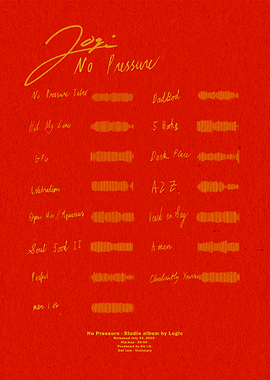 Logic
No Pressure
No Pressure Intro
Hit My Line
GP4
Celebration
Open Mic / Aquarius
Soul Food II
Perfect
man i is
DadBod
5 Hooks
Dark Place
A2Z
Heard Em Say
Amen
Obediently Yours
No Pressure - Studio album by Logic
Released July 24, 2020
Hip-hop
Produced by No I.D.
Def Jam - Visionary